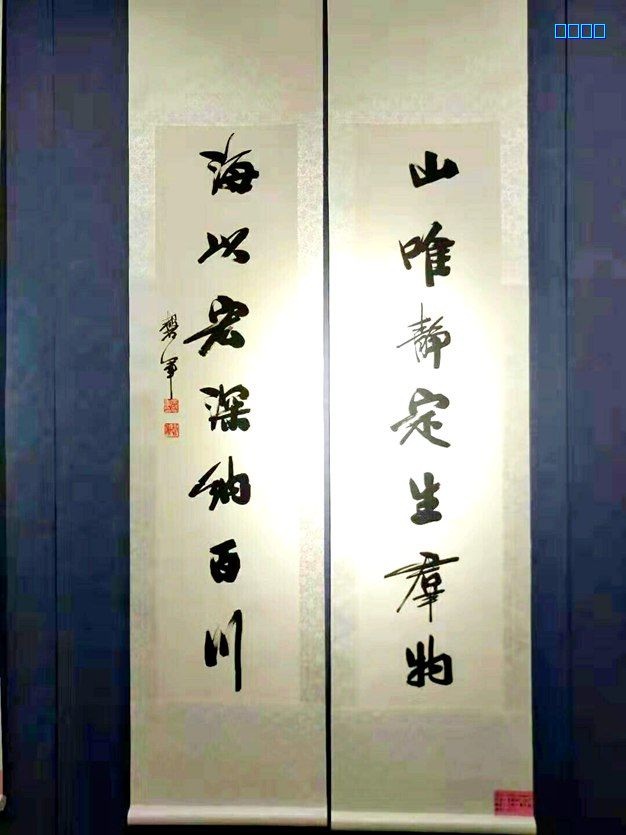 山唯静定生群物
海以宏深纳百川